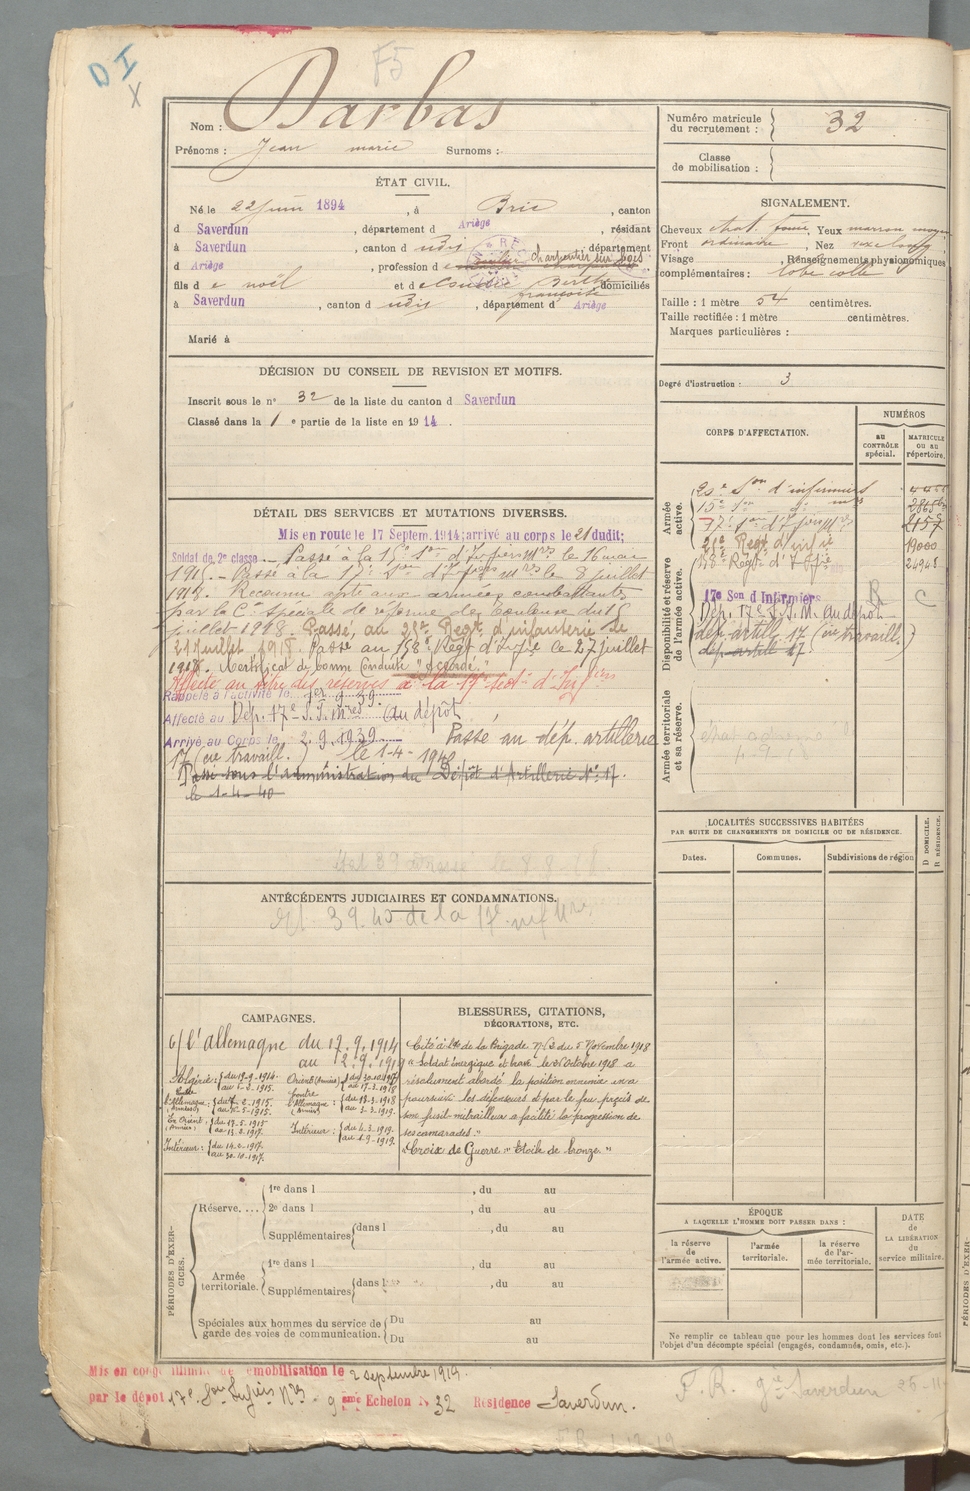 D I
X
F5
Nom : Darbas
Prénoms : Jean marie Surnoms :
Numéro matricule du recrutement : 32
Classe de mobilisation :
ÉTAT CIVIL.
Né le 22 juin 1894, à Brie, canton
d Saverdun, département d Ariège, résidant
à Saverdun, canton d udis, département
d Ariège, profession d charpentier sur bois
fils d e noël et d e Berthe françoise domiciliés
à Saverdun, canton d udis, département d Ariège
Marié à
SIGNALEMENT.
Cheveux chat. foncé, Yeux marron moyen
Front ordinaire, Nez
Visage , Renseignements physionomiques
complémentaires : lobe collé
Taille : 1 mètre 54 centimètres.
Taille rectifiée : 1 mètre centimètres.
Marques particulières :
Degré d'instruction : 3
DÉCISION DU CONSEIL DE REVISION ET MOTIFS.
Inscrit sous le n° 32 de la liste du canton d Saverdun
Classé dans la 1 e partie de la liste en 1914.
DÉTAIL DES SERVICES ET MUTATIONS DIVERSES.
Mis en route le 17 Septem. 1914; arrivé au corps le 21 dudit;
Soldat de 2e classe. Passé à la 15e Son d'Infiers Mres le 16 mai
1915. Passé à la 17e Son d'Infiers Mres le 8 juillet
1917. Reconnu apte aux armées combattantes
par la Con spéciale de réforme de Toulouse du 15
juillet 1918. Passé au Regt d'infanterie le
21 juillet 1918. Passé au 158e Regt d'Infie le 27 juillet
1918. Certificat de bonne Conduite "Accordé."
Affecté au titre des réserves à la 17e Sect. d'Infiers
Rappelé à l'activité le 1er 9 39.
Affecté au Dép. 17e S.I.Mres (au dépôt)
Arrivé au Corps le 2.9.1939 Passé au dép. artillerie
17 (cie travaill.) le 1-4-1940
Passé sous l'administration du Dépôt d'Artillerie N° 17.
le 1-4-40
CORPS D'AFFECTATION.
NUMÉROS
AU CONTRÔLE spécial.
MATRICULE OU AU répertoire.
Armée active.
Son d'infirmiers
15e Son d°
17e Son d'Infiers Mres 2157
Regt d'infie 19000
158e Regt d'Infie
Disponibilité et réserve de l'armée active.
17e Son d'Infirmiers R C
Dép. 17e S.I.M. au dépôt
dép. artill. 17 (cie travaill.)
dép. artill. 17
Armée territoriale et sa réserve.
LOCALITÉS SUCCESSIVES HABITÉES
PAR SUITE DE CHANGEMENTS DE DOMICILE OU DE RÉSIDENCE.
Dates.
Communes.
Subdivisions de région
D DOMICILE.
R RÉSIDENCE.
ANTÉCÉDENTS JUDICIAIRES ET CONDAMNATIONS.
39.40 de la 17e
CAMPAGNES.
c/ l'allemagne du 17.9.1914
au 2.9.1919
Algérie : du 17-9-1914. au 1-2-1915.
Orient (Armées) du 30.10.1917 au 17.3.1918
contre l'Allemagne (Armées) du 18-3-1918 au 3-3-1919.
En Orient (Armées) du 17.5.1915 au 13.2.1917.
Intérieur : du 4-3-1919. au 2-9-1919.
Intérieur : du 14-2-1917. au 30.10.1917.
BLESSURES, CITATIONS,
DÉCORATIONS, ETC.
Cité à l'O. de la Brigade du 5 Novembre 1918
"Soldat énergique et brave. le Octobre 1918 a
résolument abordé la position ennemie en a
poursuivi les défenseurs et par le feu précis de
son fusil-mitrailleur a facilité la progression de
ses camarades."
"Croix de Guerre" "Etoile de bronze"
PÉRIODES D'EXERCICES.
Réserve. ...
1re dans l , du au
2e dans l , du au
Supplémentaires dans l , du au
Armée territoriale.
1re dans l , du au
Supplémentaires dans l , du au
Spéciales aux hommes du service de garde des voies de communication.
Du au
Du au
ÉPOQUE
A LAQUELLE L'HOMME DOIT PASSER DANS :
la réserve de l'armée active.
l'armée territoriale.
la réserve de l'armée territoriale.
DATE de LA LIBÉRATION du service militaire.
Ne remplir ce tableau que pour les hommes dont les services font
l'objet d'un décompte spécial (engagés, condamnés, omis, etc.).
Mis en congé illimité de démobilisation le 2 septembre 1919.
par le dépôt 17e Son Infiers Mres 9 eme Echelon N° 32 Résidence Saverdun.
F. R. Saverdun
PÉRIODES D'EXER-